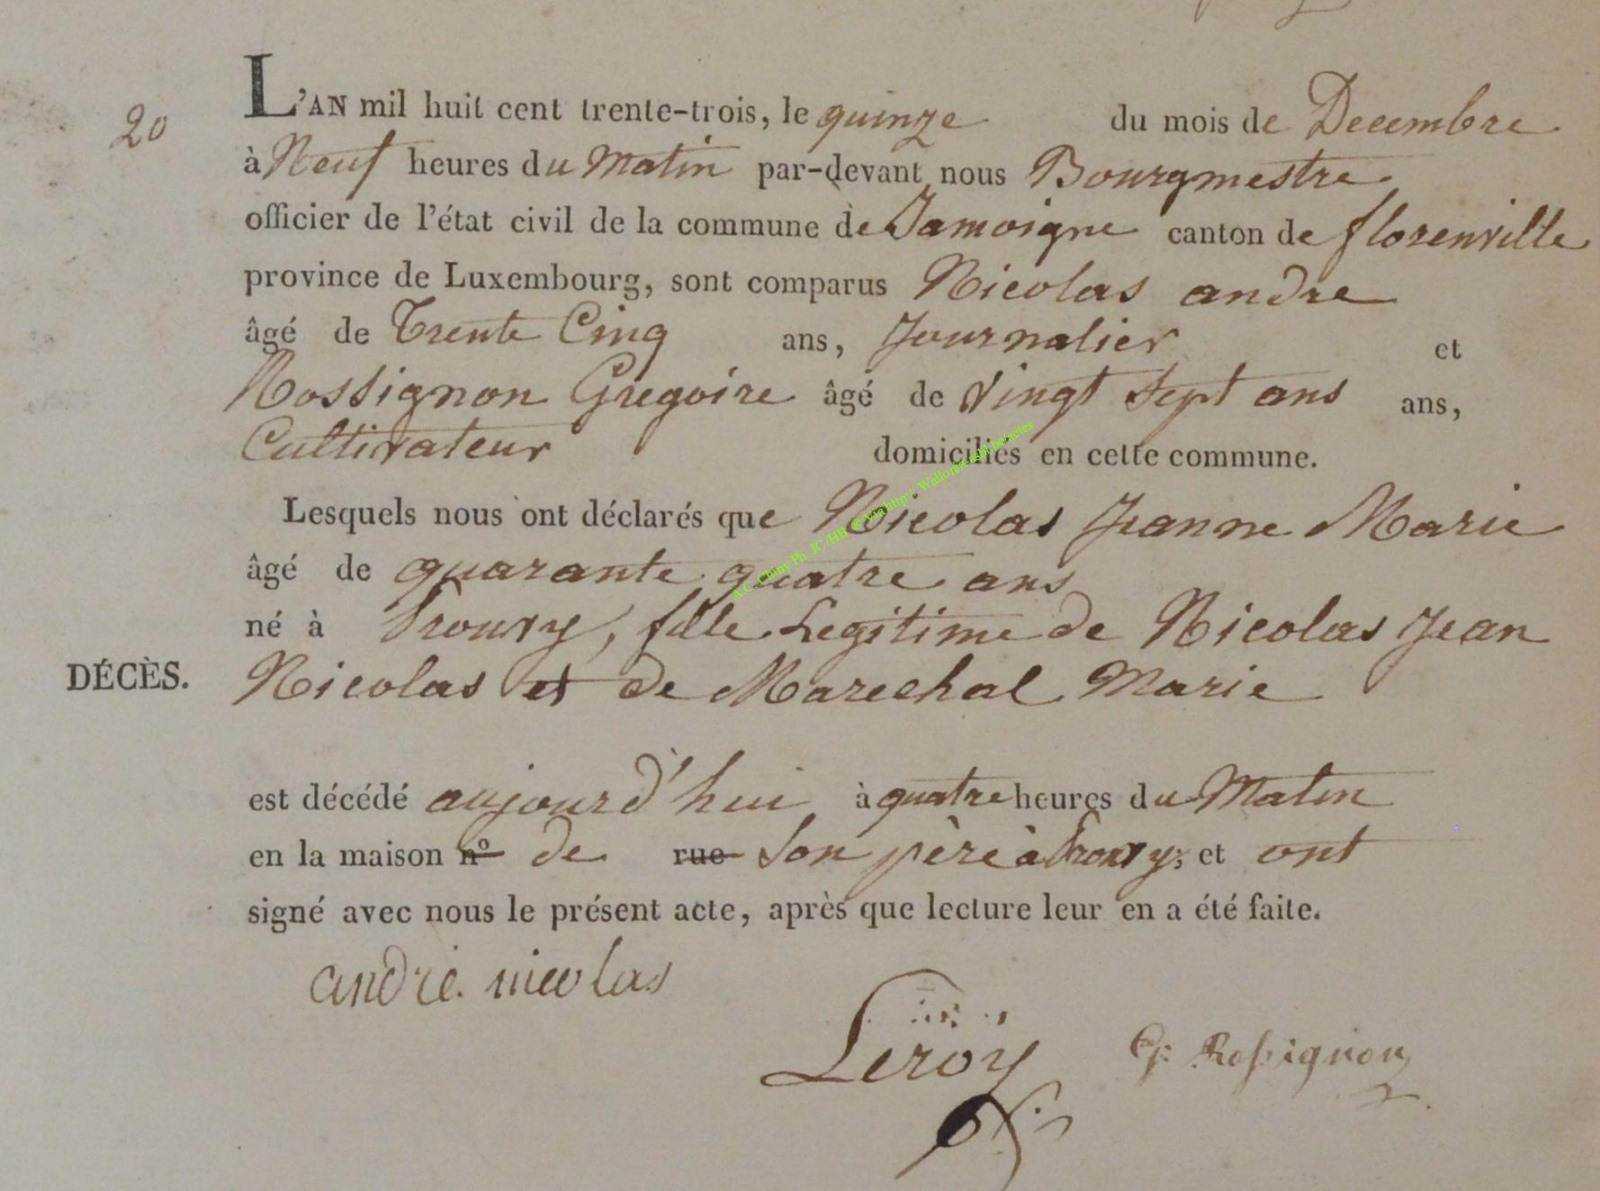 20
L'AN mil huit cent trente-trois, le quinze du mois de Decembre
à Neuf heures du Matin par-devant nous Bourgmestre
officier de l'état civil de la commune de Jamoigne canton de florenville
province de Luxembourg, sont comparus Nicolas andre
âgé de Trente Cinq ans, Journalier et
Rossignon Gregoire âgé de vingt Sept ans ans,
Cultivateur domiciliés en cette commune.
Lesquels nous ont déclarés que Nicolas Jeanne Marie
âgé de quarante quatre ans
né à Prouvy, fille Legitime de Nicolas Jean
DÉCÈS. Nicolas et de Marechal Marie
est décédé aujourd'hui à quatre heures du Matin
en la maison n° de rue Son père à Prouvy, et ont
signé avec nous le présent acte, après que lecture leur en a été faite.
andré. nicolas
Leroy G: Rossignon